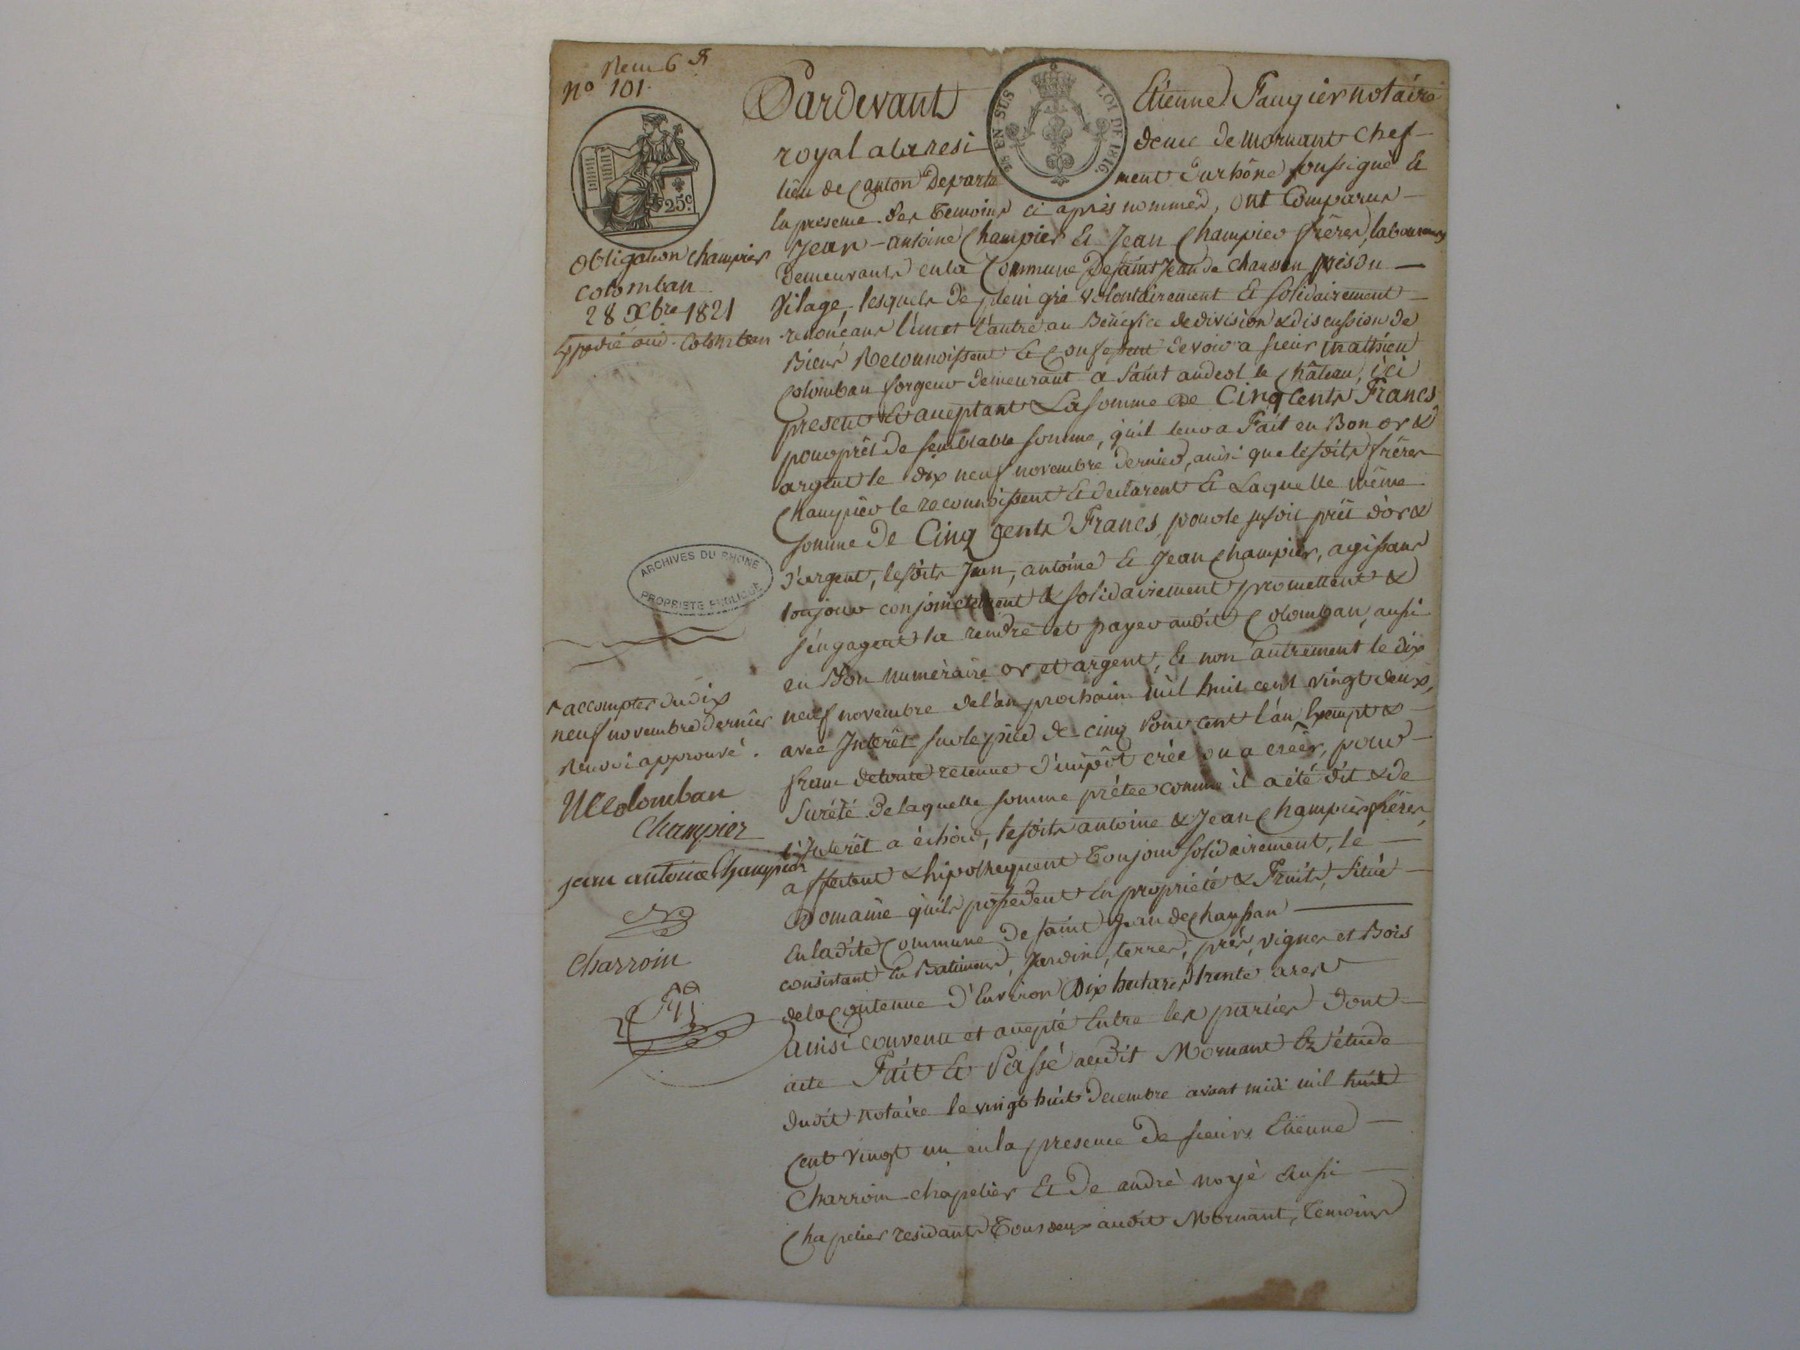 Renu 6 fr
No 101.
Pardevant Etienne Faugier notaire
EN SUS LOI DE 1816
royal a la resi dence de mornant chef-
lieu de Canton Departe ment du rhône soussigné Et
25c.
En presence des temoins ci après nommés, ont Comparus
Jean-antoine Champier Et Jean Champier frères, laboureurs
demeurants en la Commune de saint Jean de Chaussan près du
Vilage, lesquels de plein gré volontairement Et solidairement
renonceans l'un et l'autre au Benefice de division & discussion de
Biens Reconnoissent Et Confessent devoir a sieur mathieu
Colomban forgeur demeurant a Saint andeol le Château, ici
present Et acceptant La somme de Cinq Cents Francs
pour prêt de semblable somme, qu'il leur a Fait en Bon or &
argent le dix neuf novembre dernier, ainsi que lesdits frères
Champier le reconnoissent Et declarent Et Laquelle même
somme de Cinq Cents Francs, pour le susdit prêt d'or &
d'argent, lesdits Jean, antoine Et Jean Champier, agissans
toujour conjointement & solidairement promettent &
s'engagent la rendre et payer audit Colomban, aussi
en Bon numèraire or et argent, Et non autrement le dix
neuf novembre de l'an prochain mil huit cent vingt deux,
avec Interêt sur le pied de cinq pour cent l'an Exempt &
franc de toute retenue d'impôt créé ou a créer, pour
Sureté de laquelle somme prétée comme il a été dit & de
l'Interêt a échoir, lesdits antoine & Jean Champier frères,
affectent & hipothequent Toujour solidairement, le
Domaine qu'ils possedent En propriété & Fruits, Situé
En ladite Commune de saint Jean de Chaussan
consistant En Batiments, Jardin, terres, près, vignes et Bois
de la Contenue d'Environ Dix hectares trente ares
Ainsi convenu et accepté Entre les parties dont
acte Fait Et Passé audit Mornant Ez étude
dudit notaire le vingt huit decembre avant midi mil huit
Cent vingt un en la presence de sieurs Etienne
Charroin chapelier Et de andré noyé aussi
Chapelier residants Tous deux audit Mornant, Temoins
Obligation champier
colomban
28 Xbre 1821
Expedié aud. Colomban
ARCHIVES DU RHONE
PROPRIETE PUBLIQUE
a accompter du dix
neuf novembre dernier
Renvoi approuvé.
M Colomban
Champier
jean antoine Champier
Charroin